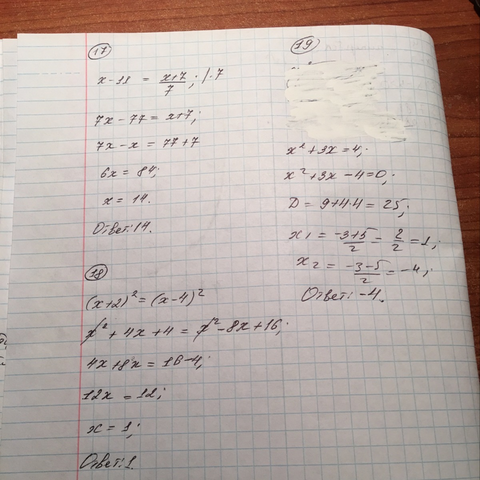 17
x-11 = x+7/7; |·7
7x-77=x+7;
7x-x = 77+7
6x = 84;
x = 14.
Ответ: 14.
18
(x+2)² = (x-4)²
x² + 4x + 4 = x² - 8x + 16;
4x+8x = 16-4;
12x = 12;
x = 1;
Ответ: 1.
19
x² + 3x = 4;
x² + 3x - 4 = 0;
D = 9+4·4 = 25;
x₁ = -3+5/2 = 2/2 = 1;
x₂ = -3-5/2 = -4;
Ответ: -4.